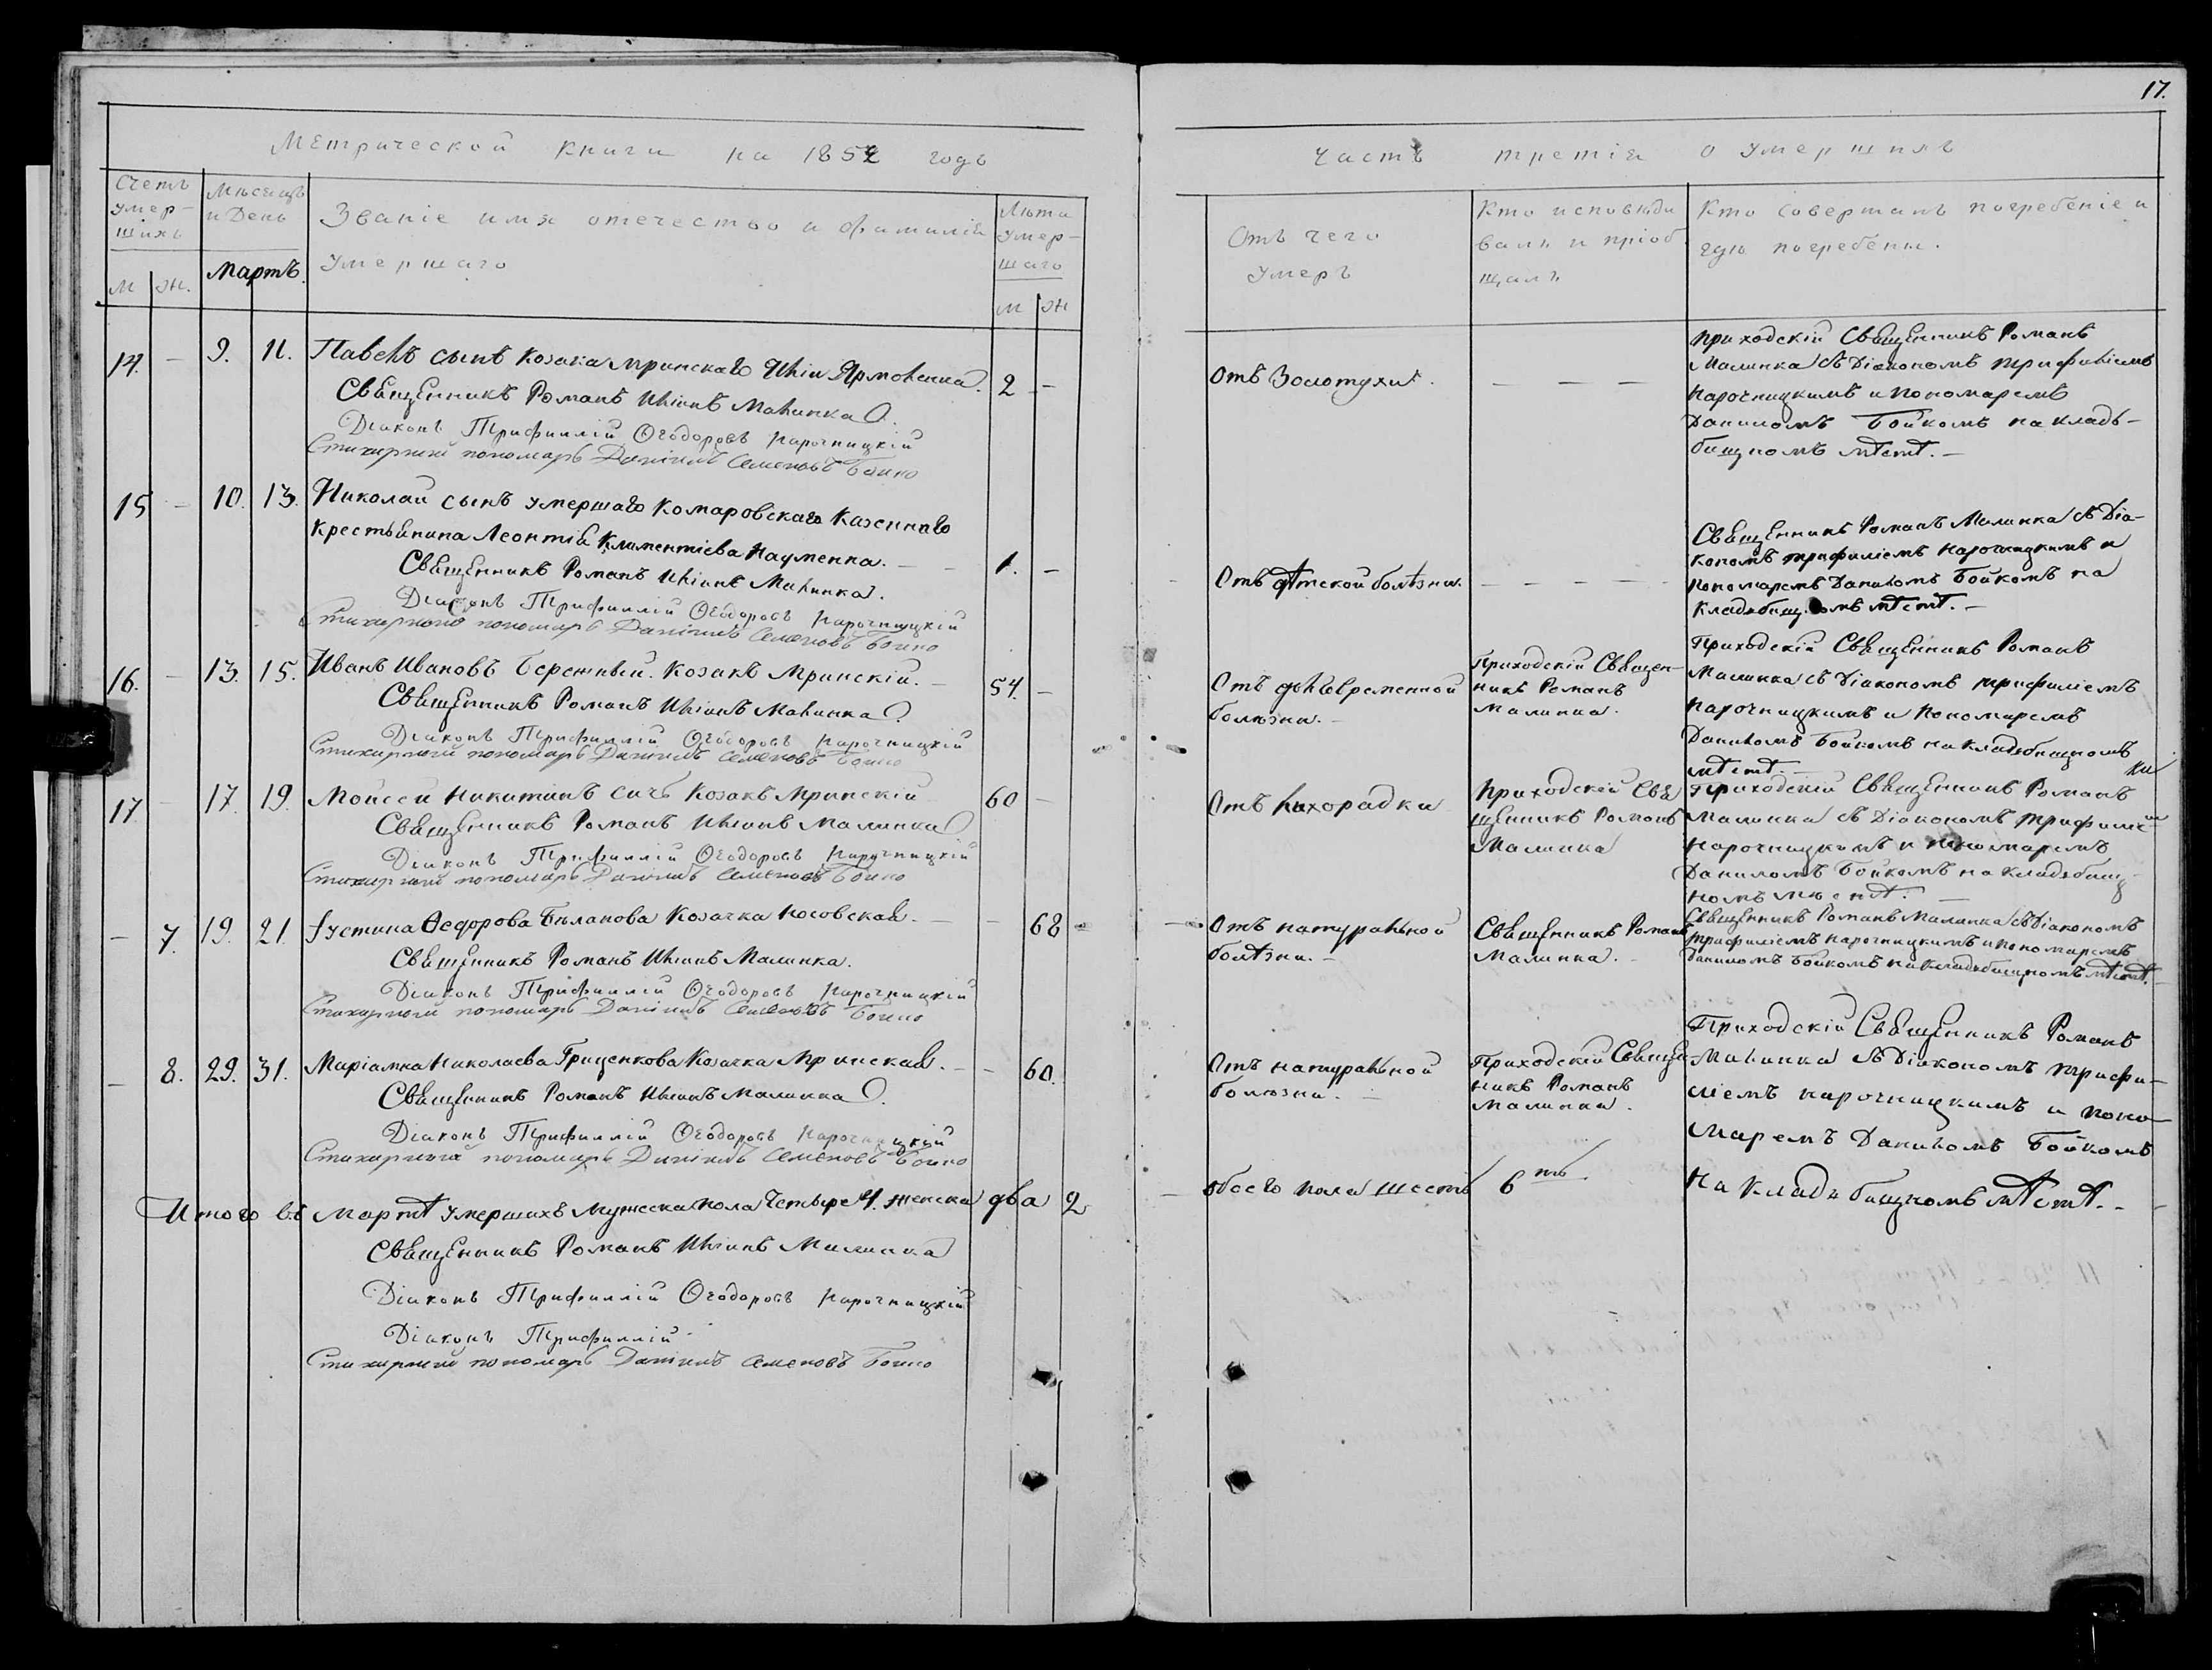 17.
Метрической книги на 1852 годъ
Часть третія о умершихъ
Счетъ умер-
шихъ
М Ж.
Мѣсяцъ
и День
Мартъ.
Званіе имя отечество и фамилія
умершаго
Лѣта
умер-
шаго
М Ж
Отъ чего
умеръ
Кто исповѣды
валъ и пріоб
щалъ
Кто совершалъ погребеніе и
гдѣ погребены.
14. — 9. 11. Павелъ сынъ козака мринскаго Иліи Ярмоленка. 2 —
Священникъ Романъ Иліинъ Малинка
Діаконъ Трифиллій Ѳеодоровъ Нарочницкій
Стихарный пономарь Даніилъ Семеновъ Бойко
Отъ Золотухи. — — —
приходскій Священникъ Романъ
Малинка съ Діакономъ Трифиліемъ
Нарочницкимъ и Пономаремъ
Даниломъ Бойкомъ на кладь-
бищномъ мѣстѣ. —
15 — 10. 13. Николай сынъ умершаго Комаровскаго Казеннаго
крестьянина Леонтія Климентіева Науменка. — 1. —
Священникъ Романъ Иліинъ Малинка.
Діаконъ Трифиллій Ѳеодоровъ Нарочницкій
Стихарный пономарь Даніилъ Семеновъ Бойко
Отъ дѣтской болѣзни. — — — —
Священникъ Романъ Малинка съ Діа-
кономъ Трифиліемъ Нарочницкимъ и
Пономаремъ Даниломъ Бойкомъ на
кладьбищномъ мѣстѣ. —
16. — 13. 15. Иванъ Ивановъ Бережный. Козакъ Мринскій. — 54. —
Священникъ Романъ Иліинъ Малинка
Діаконъ Трифиллій Ѳеодоровъ Нарочницкій
Стихарный пономарь Даніилъ Семеновъ Бойко
Отъ долговременной
болюзни. —
Приходскій Священ-
никъ Романъ
Малинка.
Приходскій Священникъ Романъ
Малинка съ Діакономъ Трифиліемъ
Нарочницкимъ и Пономаремъ
Даниломъ Бойкомъ на кладьбищномъ
мѣстѣ. —
17 — 17. 19. Мойсей Никитинъ Сичь Козакъ Мринскій 60 —
Священникъ Романъ Иліинъ Малинка
Діаконъ Трифиллій Ѳеодоровъ Нарочницкій
Стихарный пономарь Даніилъ Семеновъ Бойко
Отъ лихорадки
Приходскій Свя
щенникъ Романъ
Малинка
Приходскій Священникъ Романъ
Малинка съ Діакономъ Трифиліе
Нарочницкимъ и Пономаремъ
Даниломъ Бойкомъ на кладьбищ-
номъ мюстѣ. —
— 7. 19. 21. Іустина Ѳедорова Биланова Козачка Носовская. — — 68
Священникъ Романъ Иліинъ Малинка.
Діаконъ Трифиллій Ѳеодоровъ Нарочницкій
Стихарный пономарь Даніилъ Семеновъ Бойко
Отъ натуральной
болѣзни. —
Священникъ Романъ
Малинка. —
Священникъ Романъ Малинка съ Діакономъ
Трифиліемъ Нарочницкимъ и Пономаремъ
Даниломъ Бойкомъ на кладьбищномъ мѣстѣ.
— 8. 29. 31. Маріамна Николаева Гриценкова Козачка Мринская. — — 60.
Священникъ Романъ Иліинъ Малинка
Діаконъ Трифиллій Ѳеодоровъ Нарочницкій
Стихарный пономарь Даніилъ Семеновъ Бойко
Отъ натуральной
болюзни. —
Приходскій Священ
никъ Романъ
Малинка.
Приходскій Священникъ Романъ
Малинка съ Діакономъ Трифи-
ліемъ Нарочницкимъ и поно-
маремъ Даниломъ Бойкомъ
На Кладьбищномъ мѣстѣ. -
Итого въ Мартѣ умершихъ мужеска пола Четыре 4. женска два 2
обоего пола шесть 6 ть
Священникъ Романъ Иліинъ Малинка
Діаконъ Трифиллій Ѳеодоровъ Нарочницкій
Діаконъ Трифиллій
Стихарный пономарь Даніилъ Семеновъ Бойко